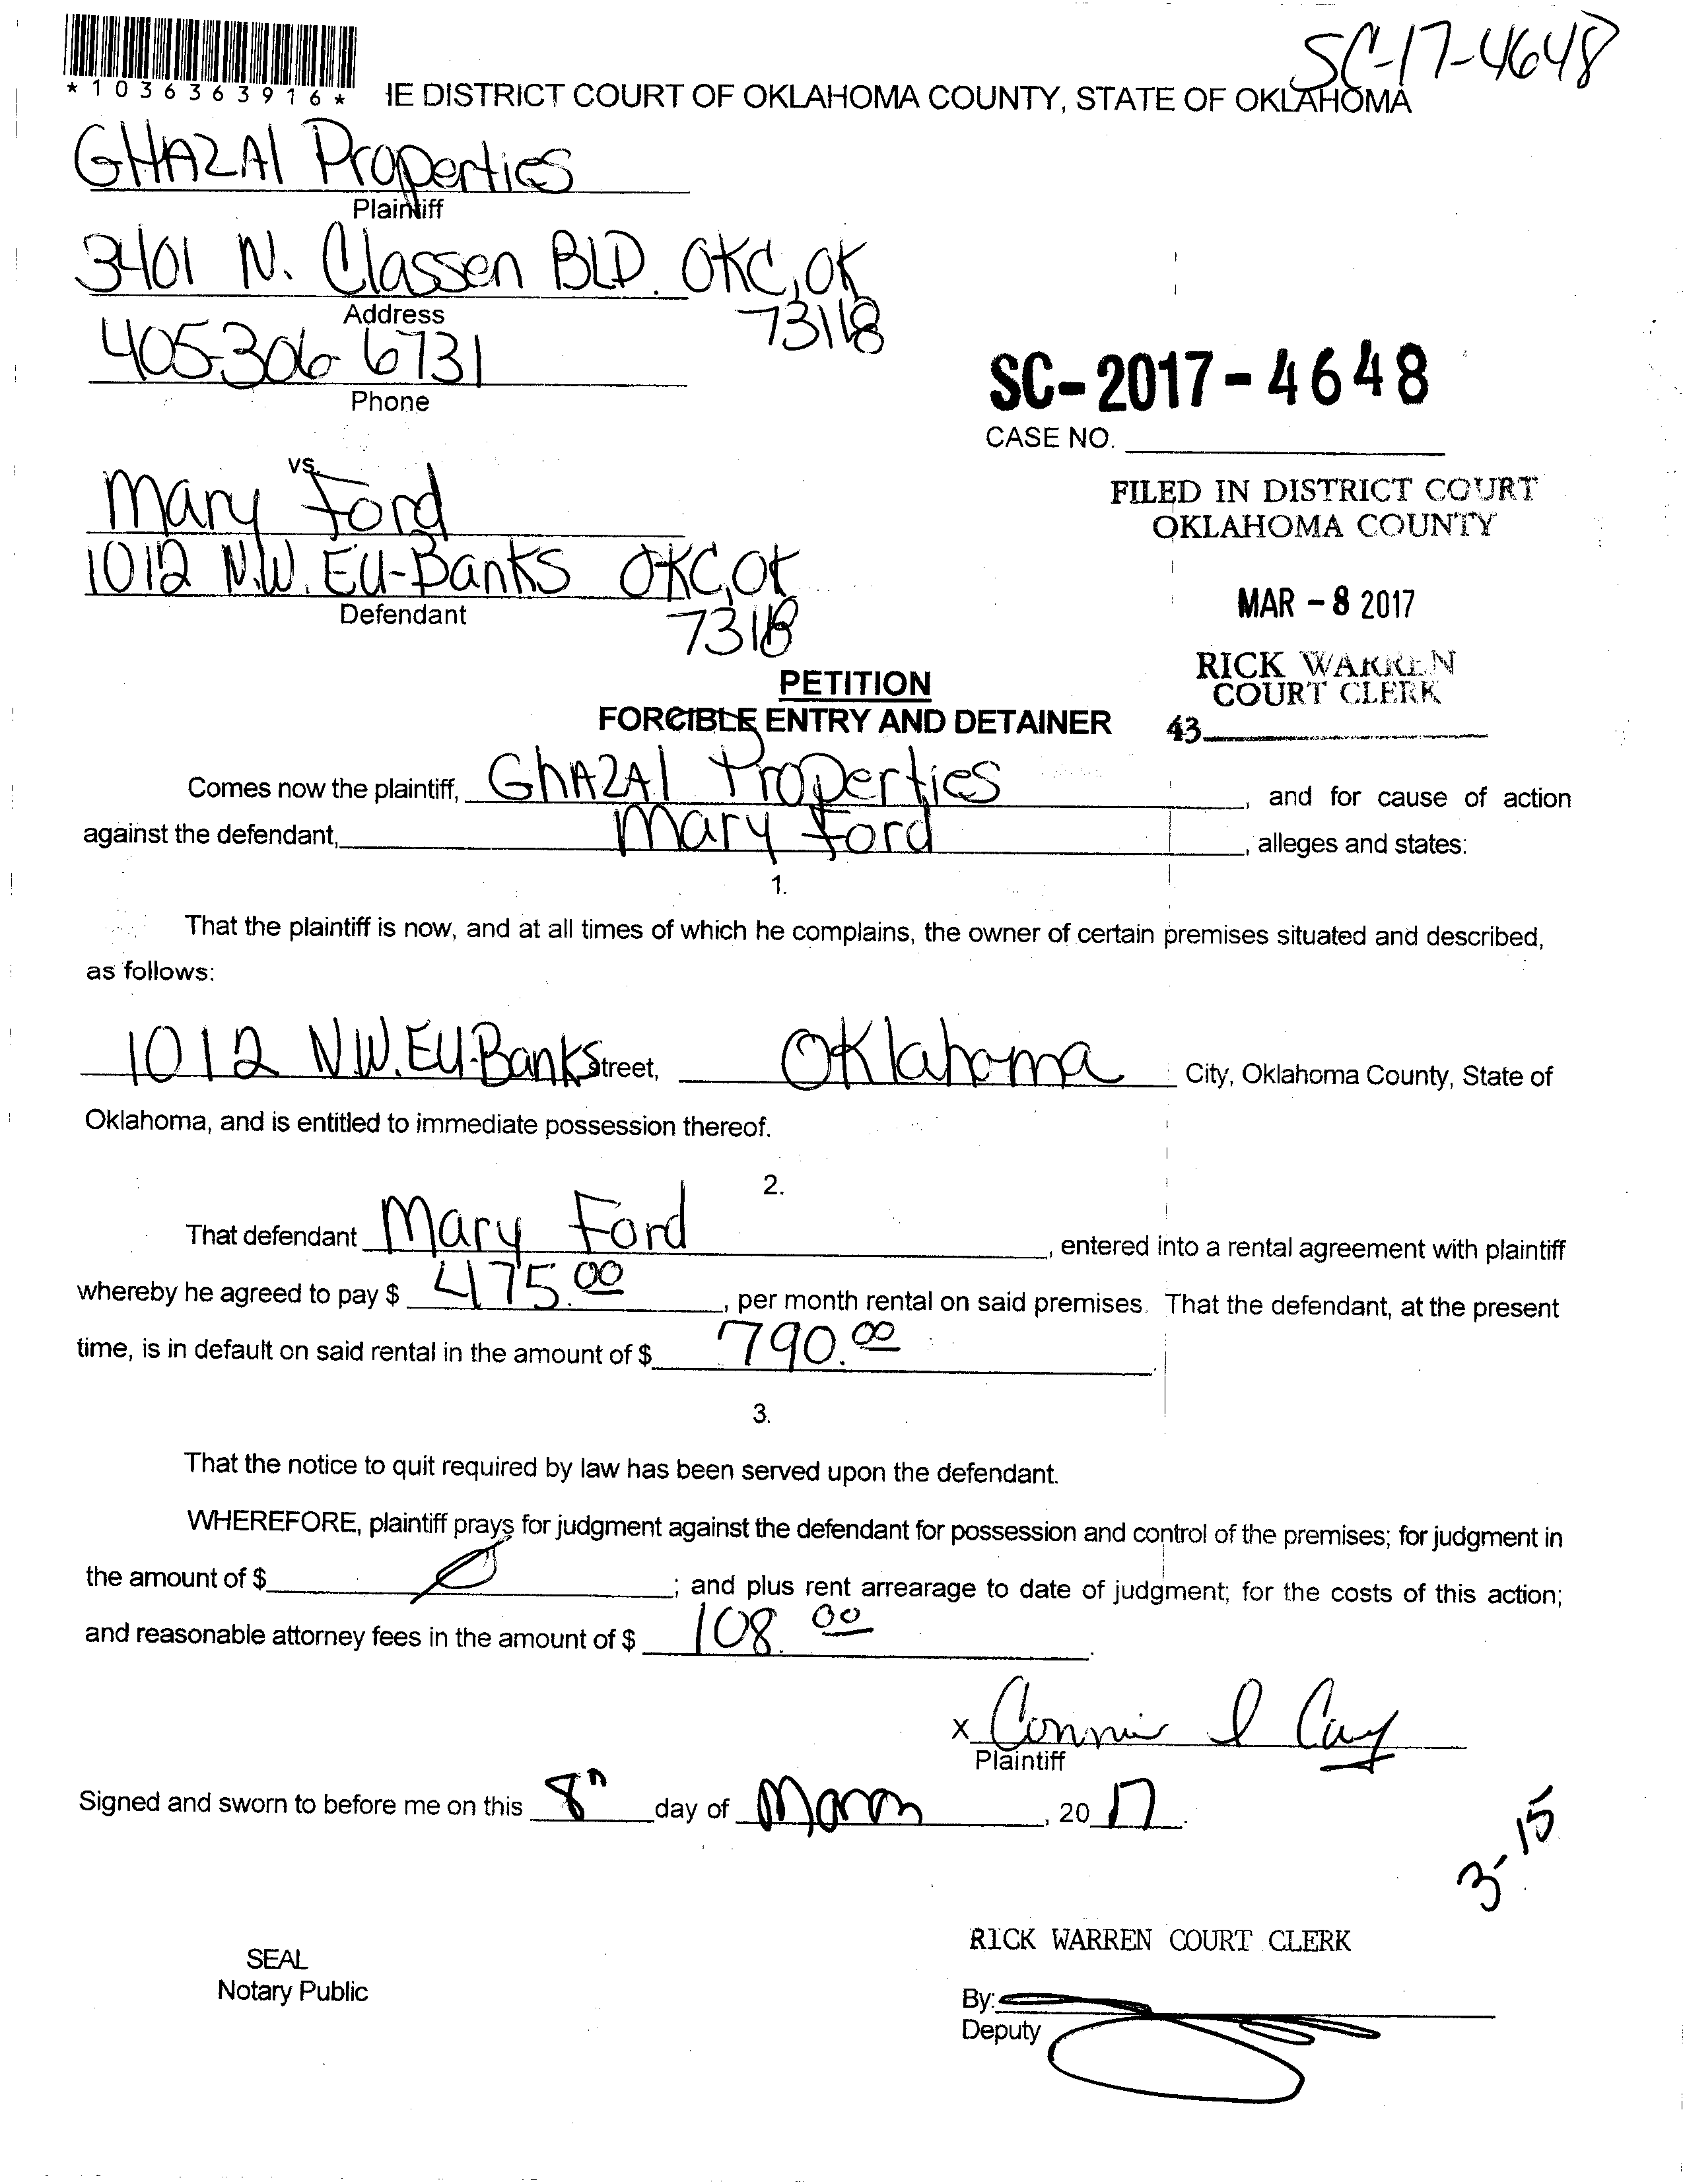 SC-17-4648
*1036363916*
IE DISTRICT COURT OF OKLAHOMA COUNTY, STATE OF OKLAHOMA
GHAZAl Properties
Plaintiff
3401 N. Classen BLD. OKC, OK
73118
Address
405-306-6731
Phone
SC-2017-4648
CASE NO.
vs.
Mary Ford
1012 N.W. EU-Banks OKC, OK
73118
Defendant
FILED IN DISTRICT COURT
OKLAHOMA COUNTY
MAR - 8 2017
RICK WARREN
COURT CLERK
43
PETITION
FORCIBLE ENTRY AND DETAINER
Comes now the plaintiff, GhAZAl Properties, and for cause of action
against the defendant, Mary Ford, alleges and states:
1.
That the plaintiff is now, and at all times of which he complains, the owner of certain premises situated and described,
as follows:
1012 N.W. EU-Banks Street, Oklahoma City, Oklahoma County, State of
Oklahoma, and is entitled to immediate possession thereof.
2.
That defendant Mary Ford, entered into a rental agreement with plaintiff
whereby he agreed to pay $ 475.00, per month rental on said premises. That the defendant, at the present
time, is in default on said rental in the amount of $ 790.00.
3.
That the notice to quit required by law has been served upon the defendant.
WHEREFORE, plaintiff prays for judgment against the defendant for possession and control of the premises; for judgment in
the amount of $ ; and plus rent arrearage to date of judgment; for the costs of this action;
and reasonable attorney fees in the amount of $ 108.00.
x Connie I Cay
Plaintiff
Signed and sworn to before me on this 8th day of March, 2017.
3-15
SEAL
Notary Public
RICK WARREN COURT CLERK
By:
Deputy